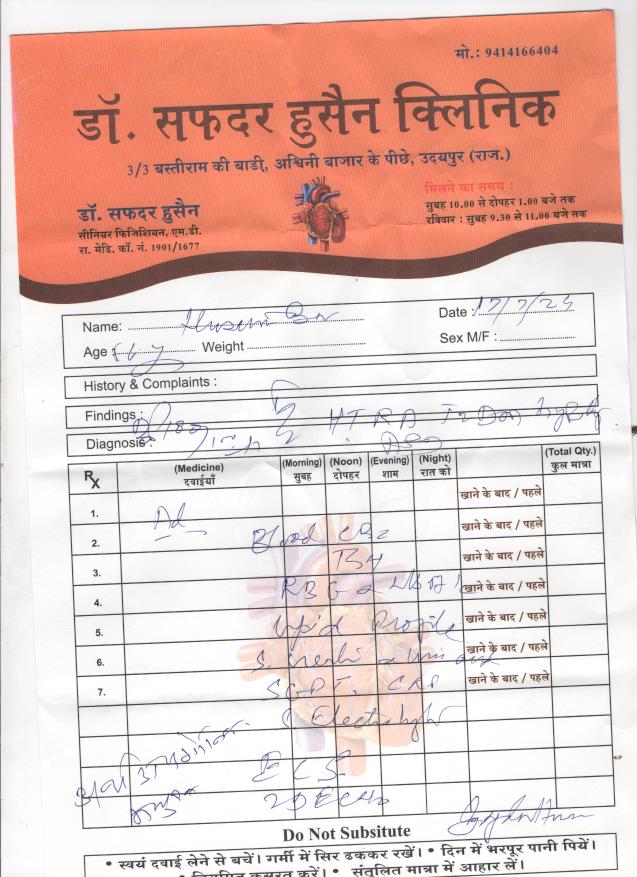 मो.: 9414166404
डॉ. सफदर हुसैन क्लिनिक
3/3 बस्तीराम की बाडी, अश्विनी बाजार के पीछे, उदयपुर (राज.)
डॉ. सफदर हुसैन
सीनियर फिजिशियन, एम.डी.
रा. मेडि. कॉ. नं. 1901/1677
मिलने का समय :
सुबह 10.00 से दोपहर 1.00 बजे तक
रविवार : सुबह 9.30 से 11.00 बजे तक
Name:
Date :
Age : Weight
Sex M/F :
History & Complaints :
Findings :
Diagnosis :
Rx (Medicine) दवाईयाँ (Morning) सुबह (Noon) दोपहर (Evening) शाम (Night) रात को (Total Qty.) कुल मात्रा
1. खाने के बाद / पहले
2. Blood CBC खाने के बाद / पहले
3. TSH खाने के बाद / पहले
4. खाने के बाद / पहले
5. Lipid Profile खाने के बाद / पहले
6. खाने के बाद / पहले
7. SGPT, CRP खाने के बाद / पहले
ECG
2D Echo
Do Not Subsitute
• स्वयं दवाई लेने से बचें। गर्मी में सिर ढककर रखें। • दिन में भरपूर पानी पियें।
• नियमित कसरत करें। • संतुलित मात्रा में आहार लें।